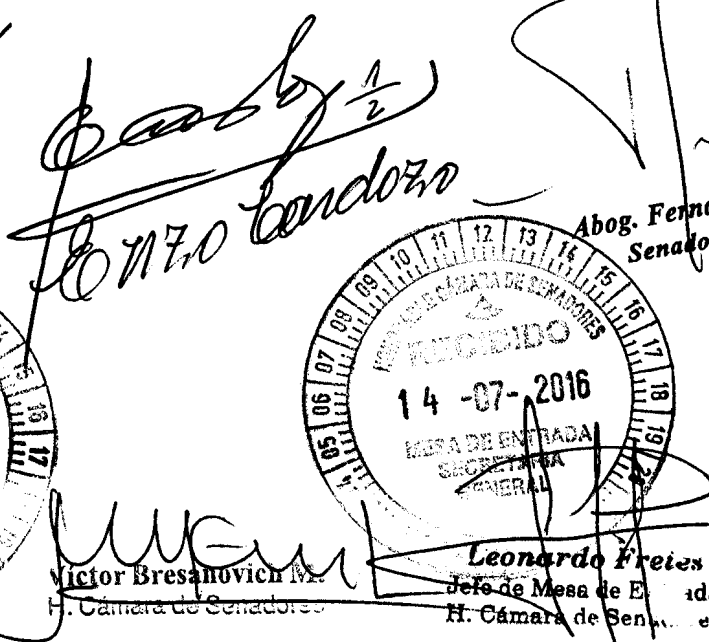 1/2
Enzo Cardozo
Abog. Ferna
Senado
05 06 07 08 09 10 11 12 13 14 15 16 17 18 19
HONORABLE CÁMARA DE SENADORES
RECIBIDO
14 -07- 2016
MESA DE ENTRADA
SECRETARIA
GENERAL
15 16 17
Víctor Bresanovich M.
H. Cámara de Senadores
Leonardo Freies
Jefe de Mesa de E
H. Cámara de Sen